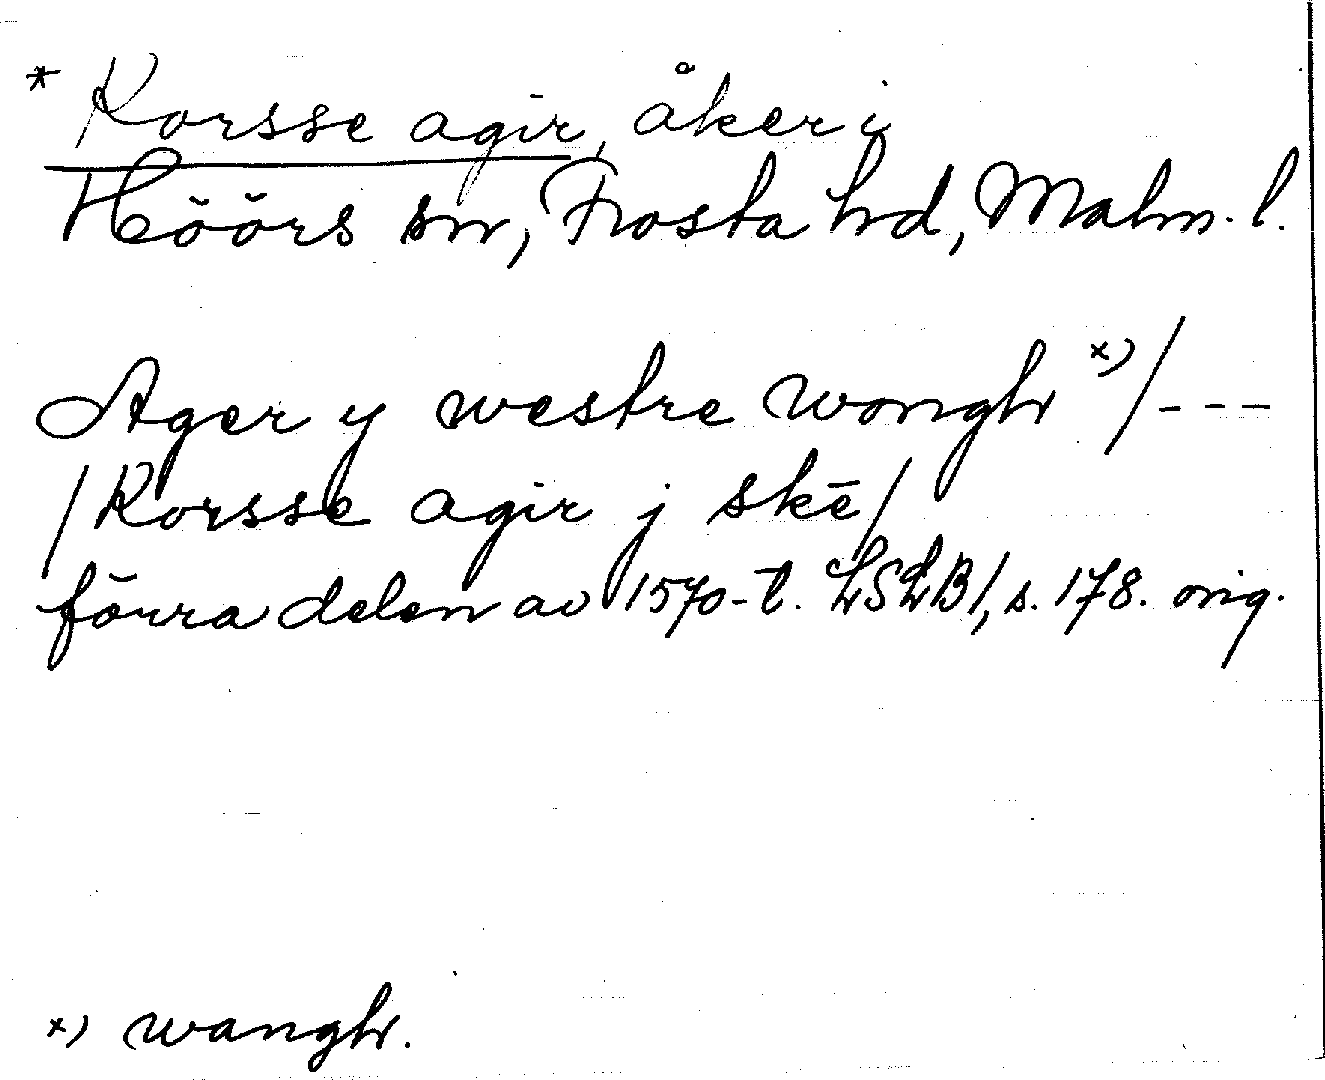 * Korsse agir, åker i
Höörs sn, Frosta hd, Malm. l.
Ager y westre wongh x) / ---
/ Korsse agir j skē /
förra delen av 1570-t. LSLB 1, s. 178. orig.
x) wangh.